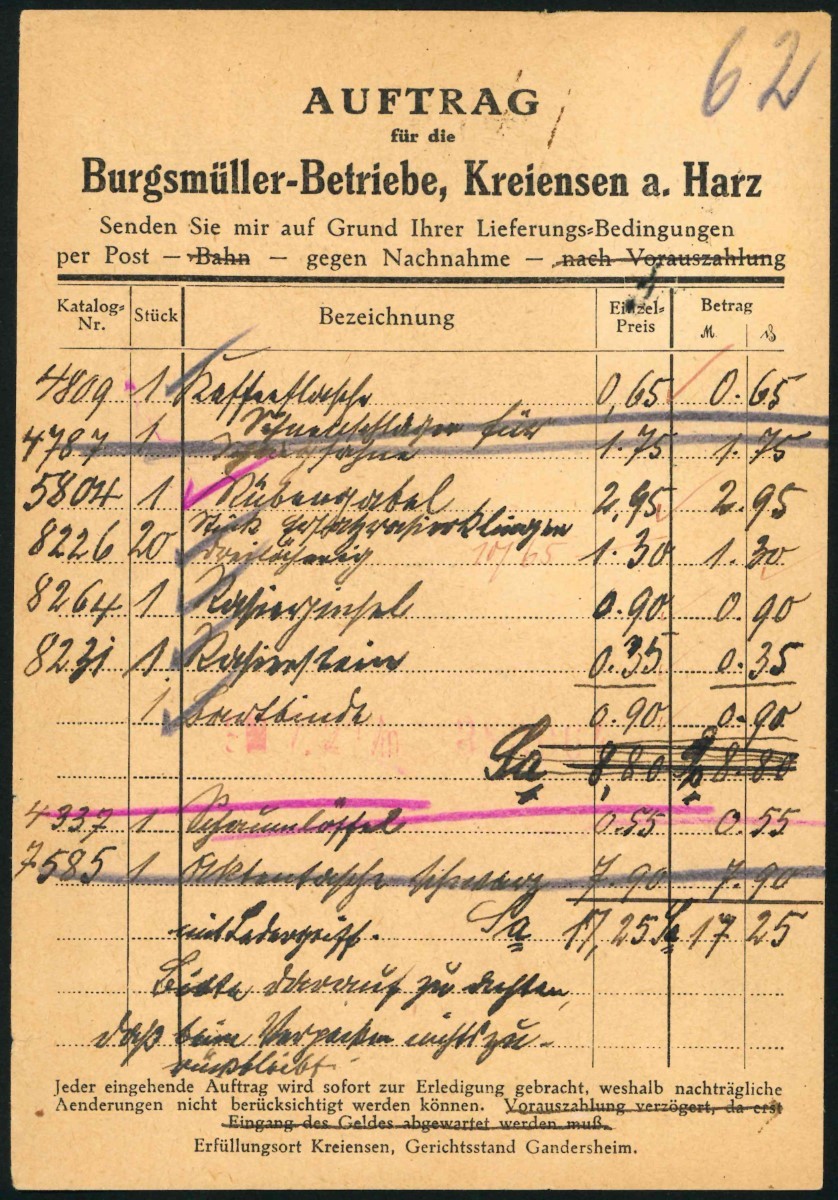 62
AUFTRAG
für die
Burgsmüller-Betriebe, Kreiensen a. Harz
Senden Sie mir auf Grund Ihrer Lieferungs-Bedingungen
per Post — Bahn — gegen Nachnahme — nach Vorauszahlung
Katalog-Nr. Stück Bezeichnung Einzel-Preis Betrag M
4809 1 Kaffeeflasche 0,65 0.65
4787 1 Schneeschläger für
1.75 1.75
5804 1 Rübengabel 2,95 2.95
8226 20 Stck
dreilöcherig 1.30 1.30
8264 1 Rasierpinsel 0.90 0.90
8231 1 Rasierstein 0.35 0.35
1 Bartbinde 0.90 0.90
Sa 8,80 8.80
4337 1 Schaumlöffel 0.55 0.55
7585 1 Aktentasche schwarz 7.90 7.90
mit Ledergriff. Sa 17,25 Sa 17 25
Bitte darauf zu achten,
daß beim Verpacken nichts zu-
rückbleibt.
Jeder eingehende Auftrag wird sofort zur Erledigung gebracht, weshalb nachträgliche
Aenderungen nicht berücksichtigt werden können. Vorauszahlung verzögert, da erst
Eingang des Geldes abgewartet werden muß.
Erfüllungsort Kreiensen, Gerichtsstand Gandersheim.